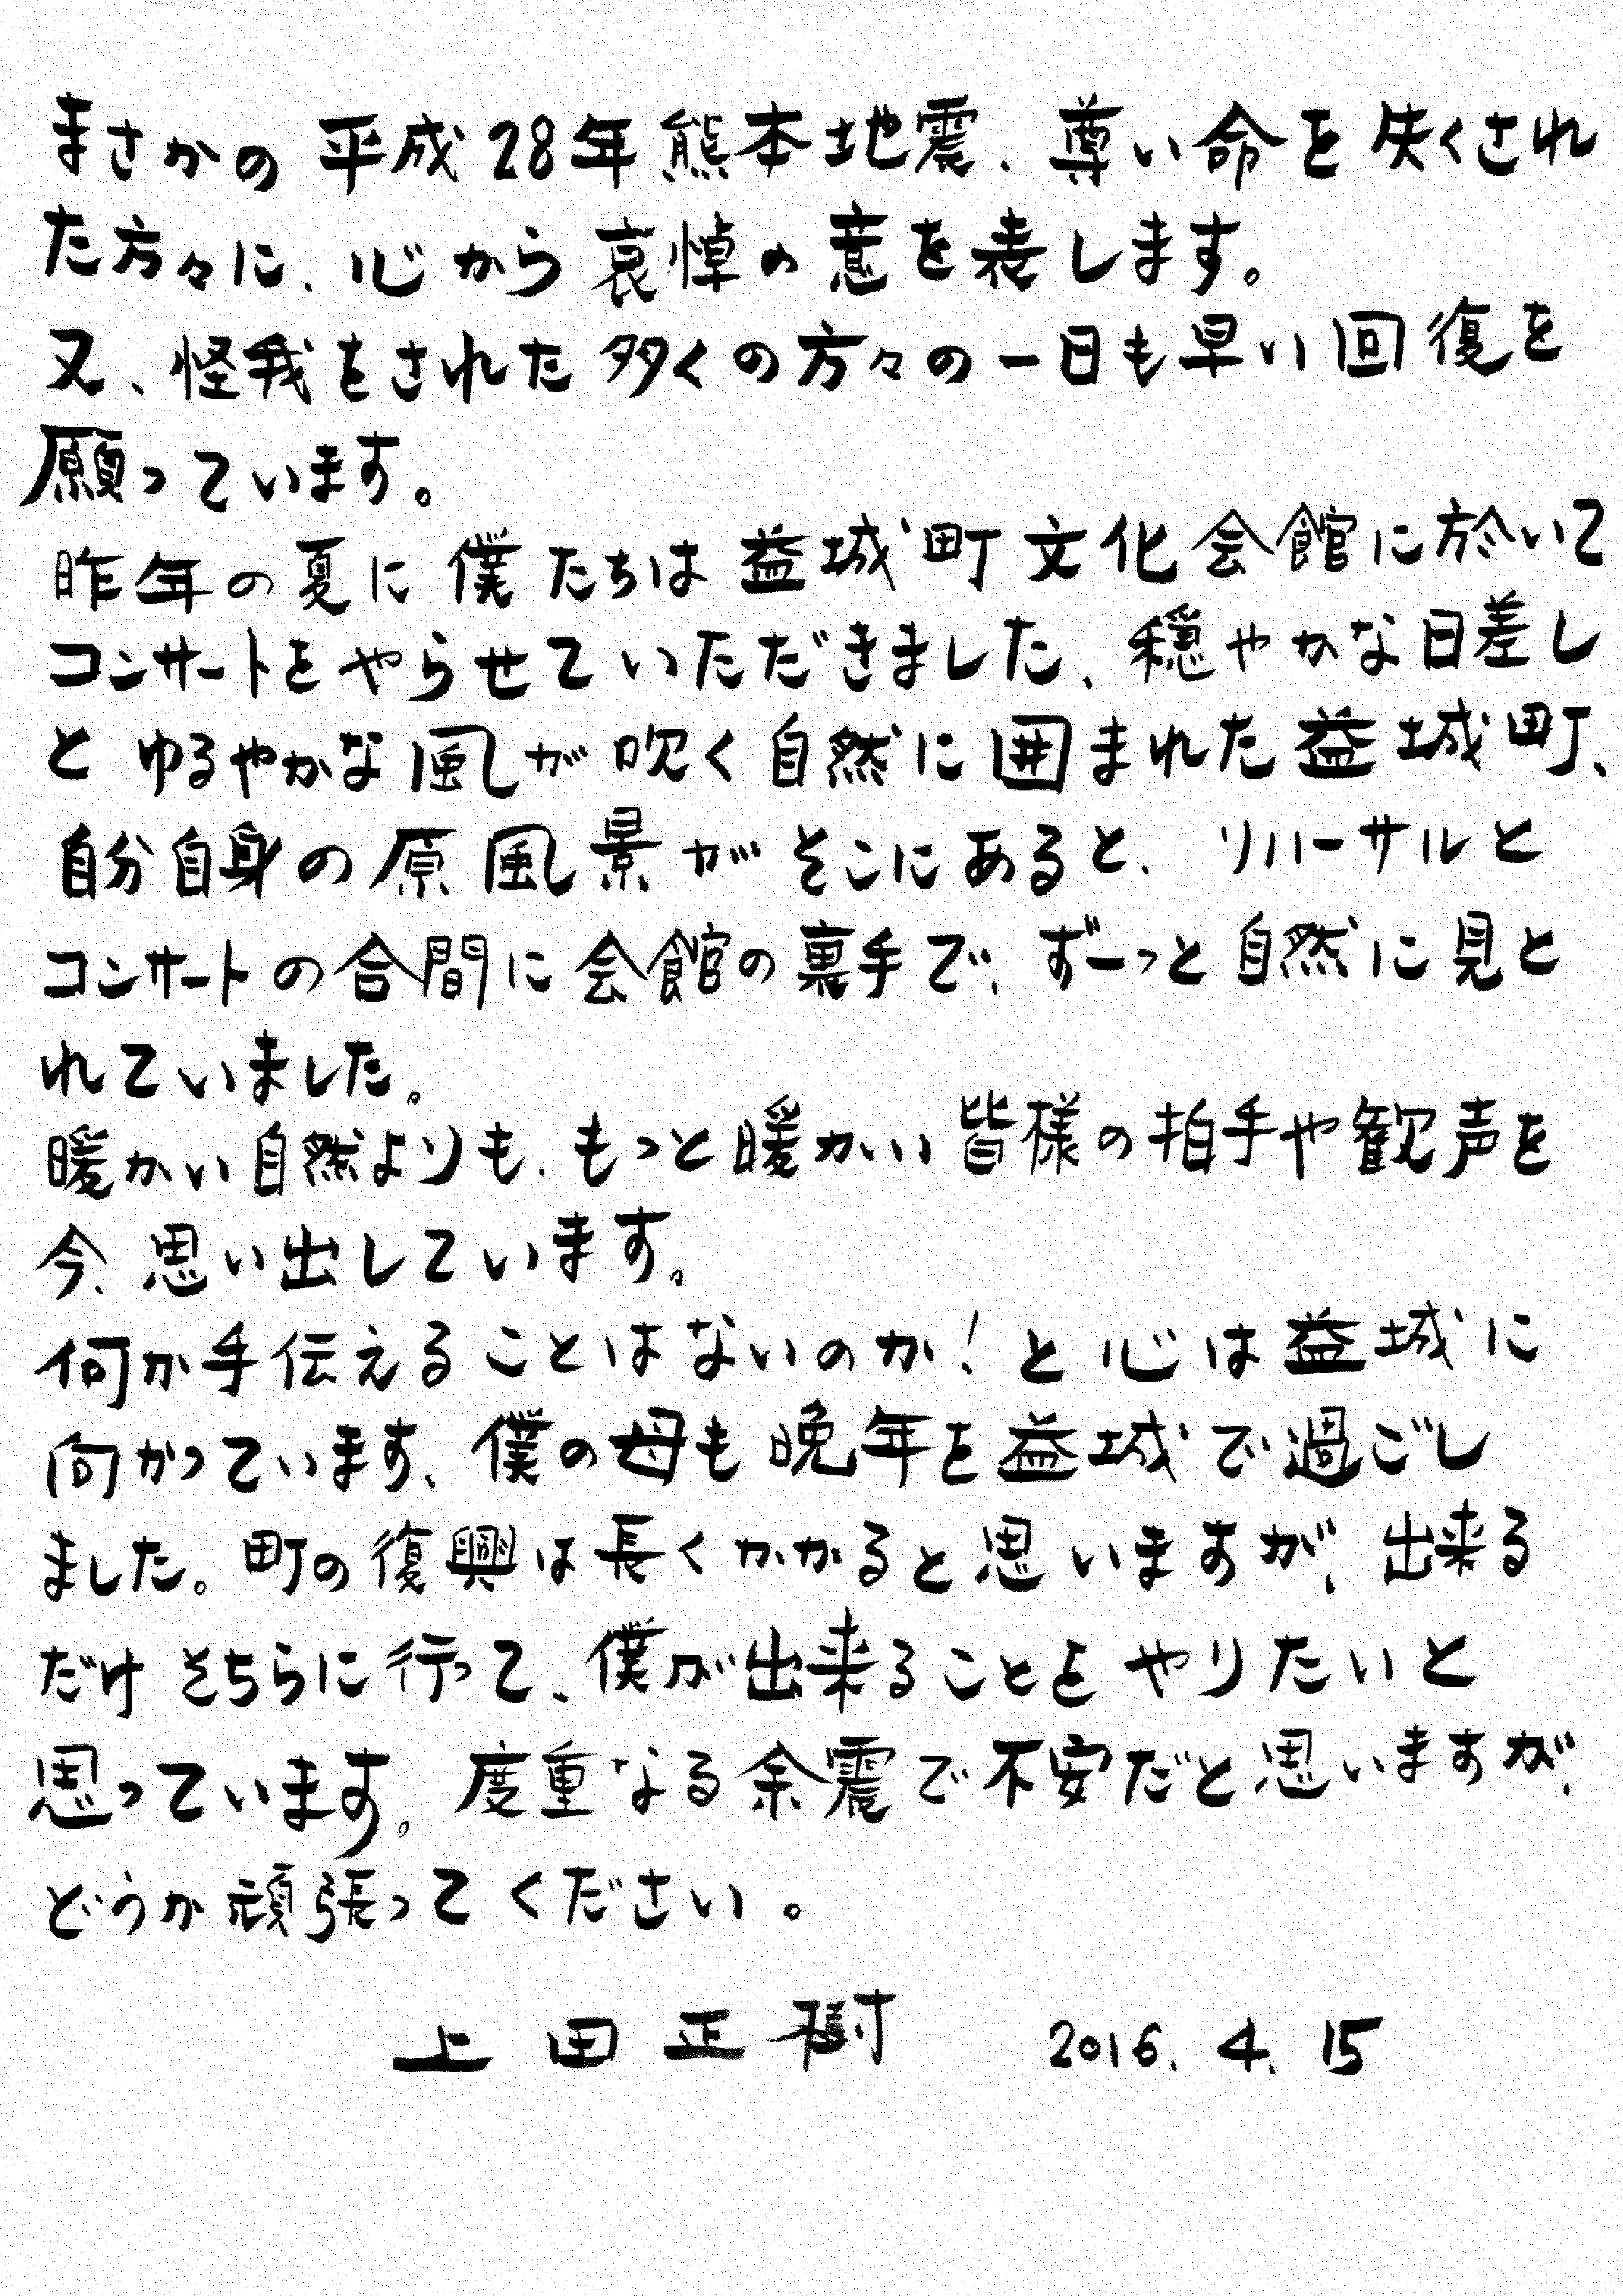 まさかの平成28年熊本地震、尊い命を失くされ
た方々に、心から哀悼の意を表します。
又、怪我をされた多くの方々の一日も早い回復を
願っています。
昨年の夏に僕たちは益城町文化会館に於いて
コンサートをやらせていただきました、穏やかな日差し
とゆるやかな風が吹く自然に囲まれた益城町、
自分自身の原風景がそこにあると、リハーサルと
コンサートの合間に会館の裏手で、ずーっと自然に見と
れていました。
暖かい自然よりも、もっと暖かい皆様の拍手や歓声を
今、思い出しています。
何か手伝えることはないのか!と心は益城に
向かっています、僕の母も晩年を益城で過ごし
ました。町の復興は長くかかると思いますが、出来る
だけそちらに行って、僕が出来ることをやりたいと
思っています。度重なる余震で不安だと思いますが、
どうか頑張ってください。
上田正樹 2016.4.15